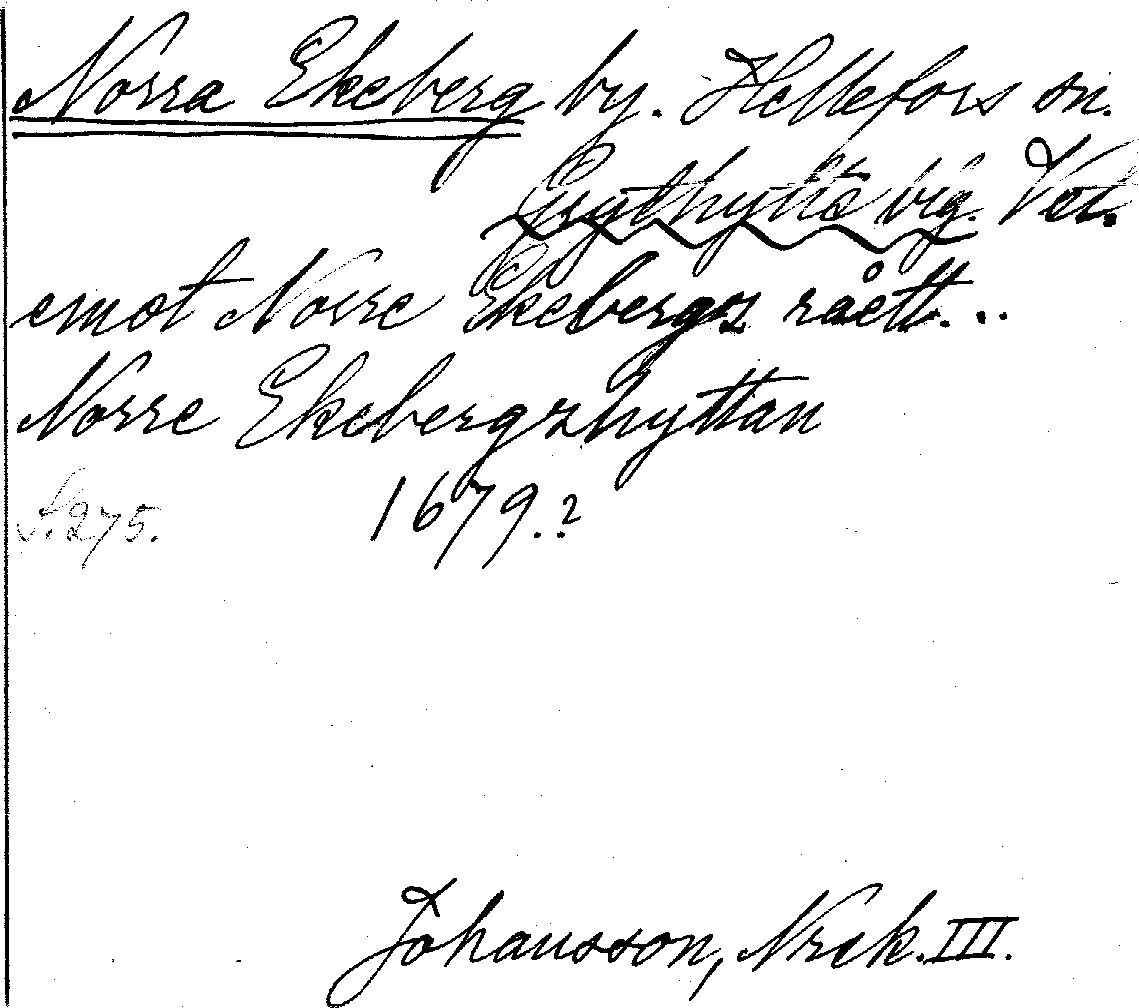 Norra Ekeberg by. Hellefors sn.
Grythytte bg. Vst.
emot Norre Ekebergz råett...
Norre Ekebergzhyttan
S. 275. 1679.?
Johansson, Nrck. III.